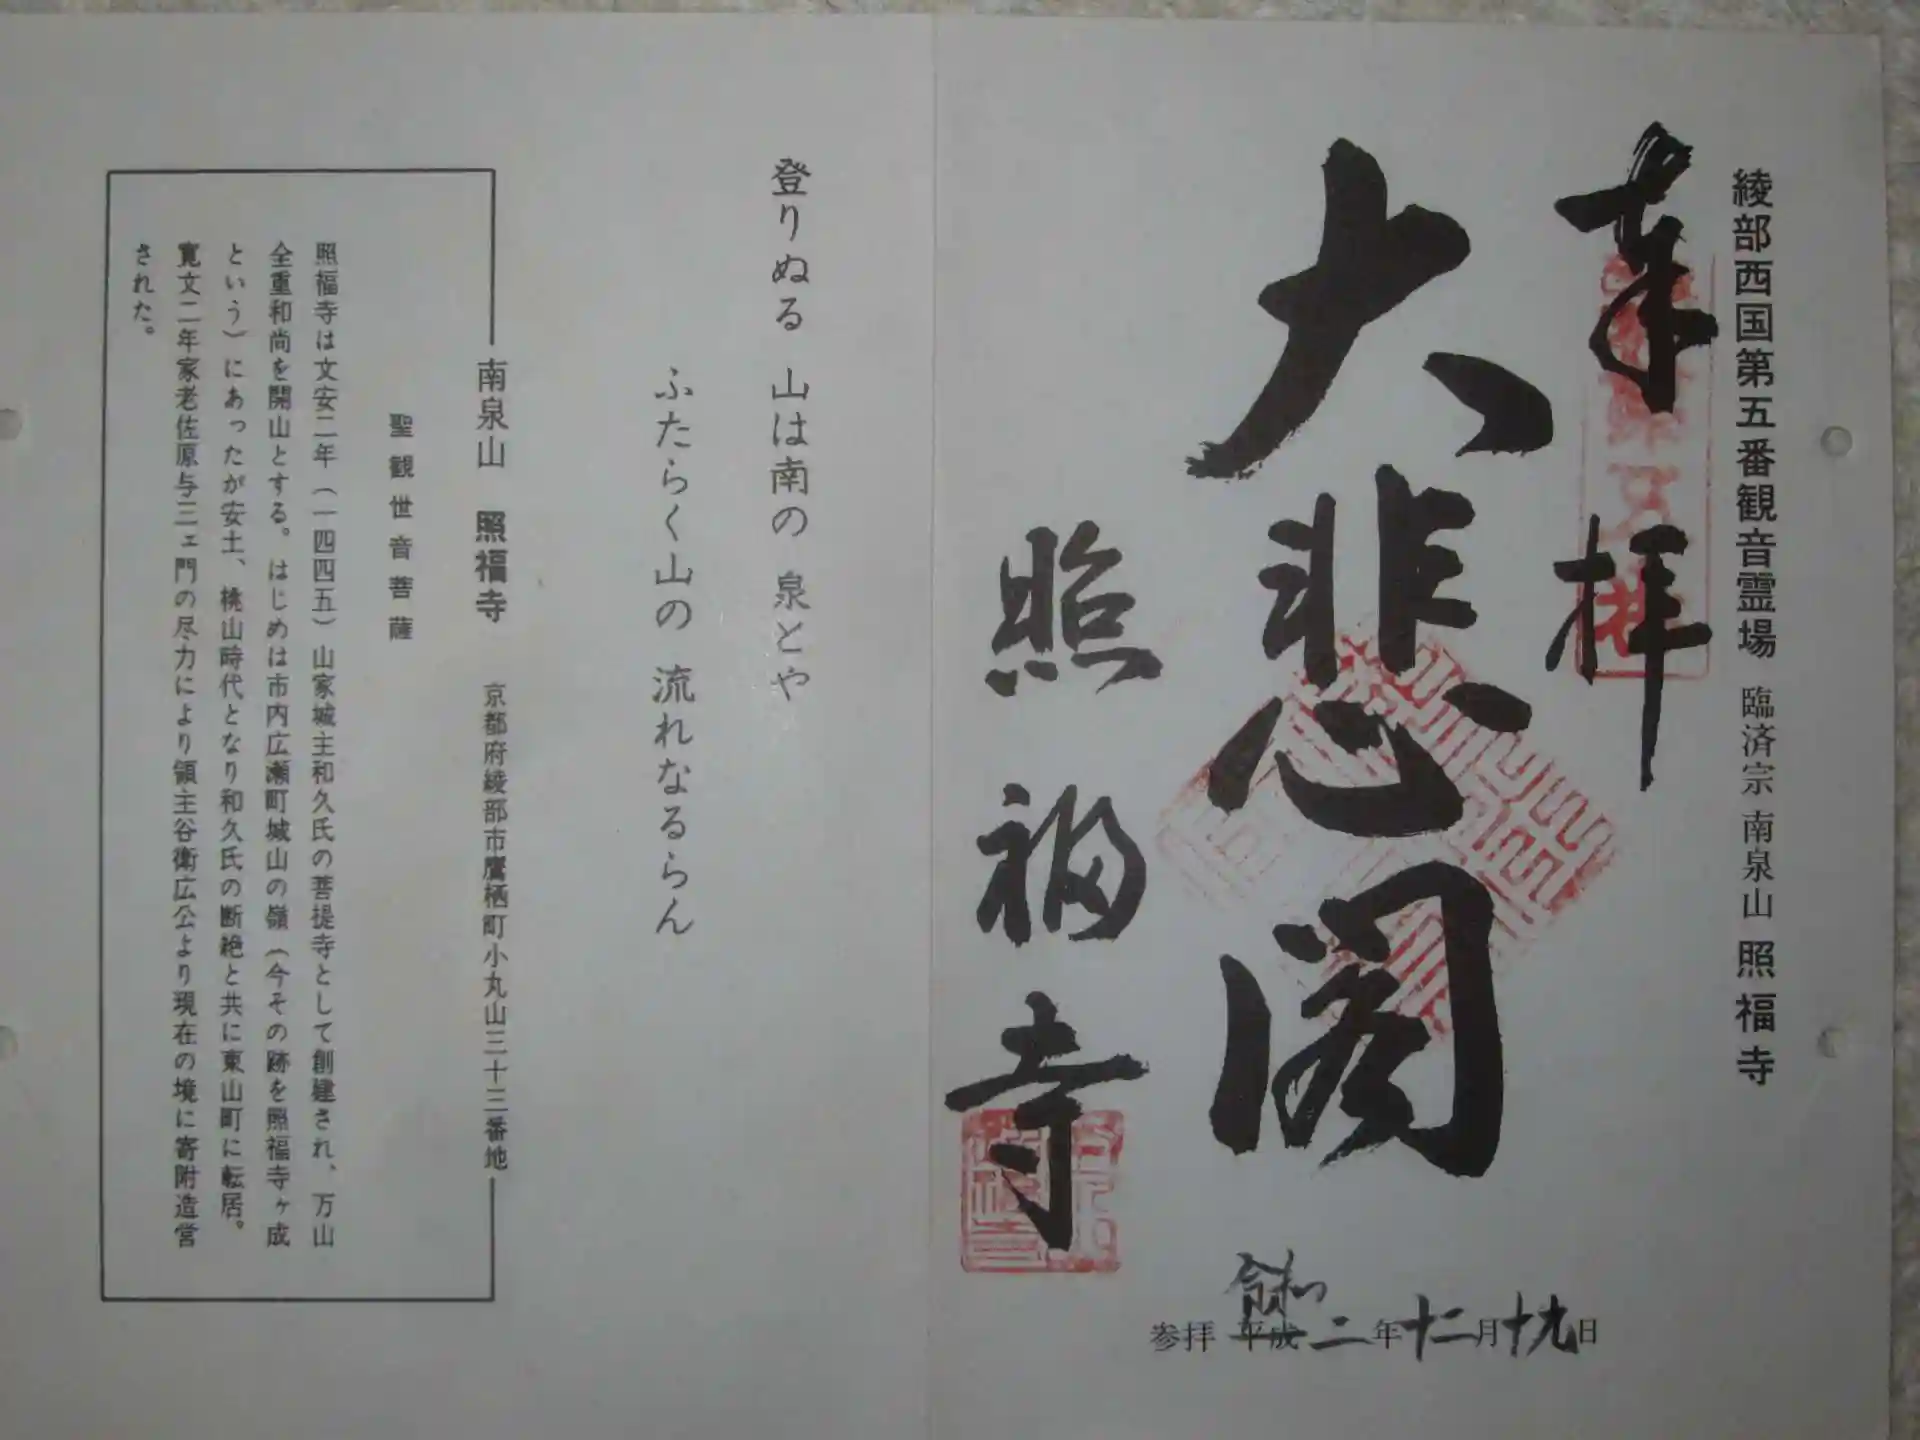 綾部西国第五番観音霊場 臨済宗 南泉山 照福寺
奉拝
大悲閣
照福寺
参拝 平成 令和 二年十二月十九日
登りぬる 山は南の 泉とや
ふたらく山の 流れなるらん
南泉山 照福寺 京都府綾部市鷹栖町小丸山三十三番地
聖観世音菩薩
照福寺は文安二年（一四四五）山家城主和久氏の菩提寺として創建され、万山
全重和尚を開山とする。はじめは市内広瀬町城山の嶺（今その跡を照福寺ヶ成
という）にあったが安土、桃山時代となり和久氏の断絶と共に東山町に転居。
寛文二年家老佐原与三ェ門の尽力により領主谷衛広公より現在の境に寄附造営
された。